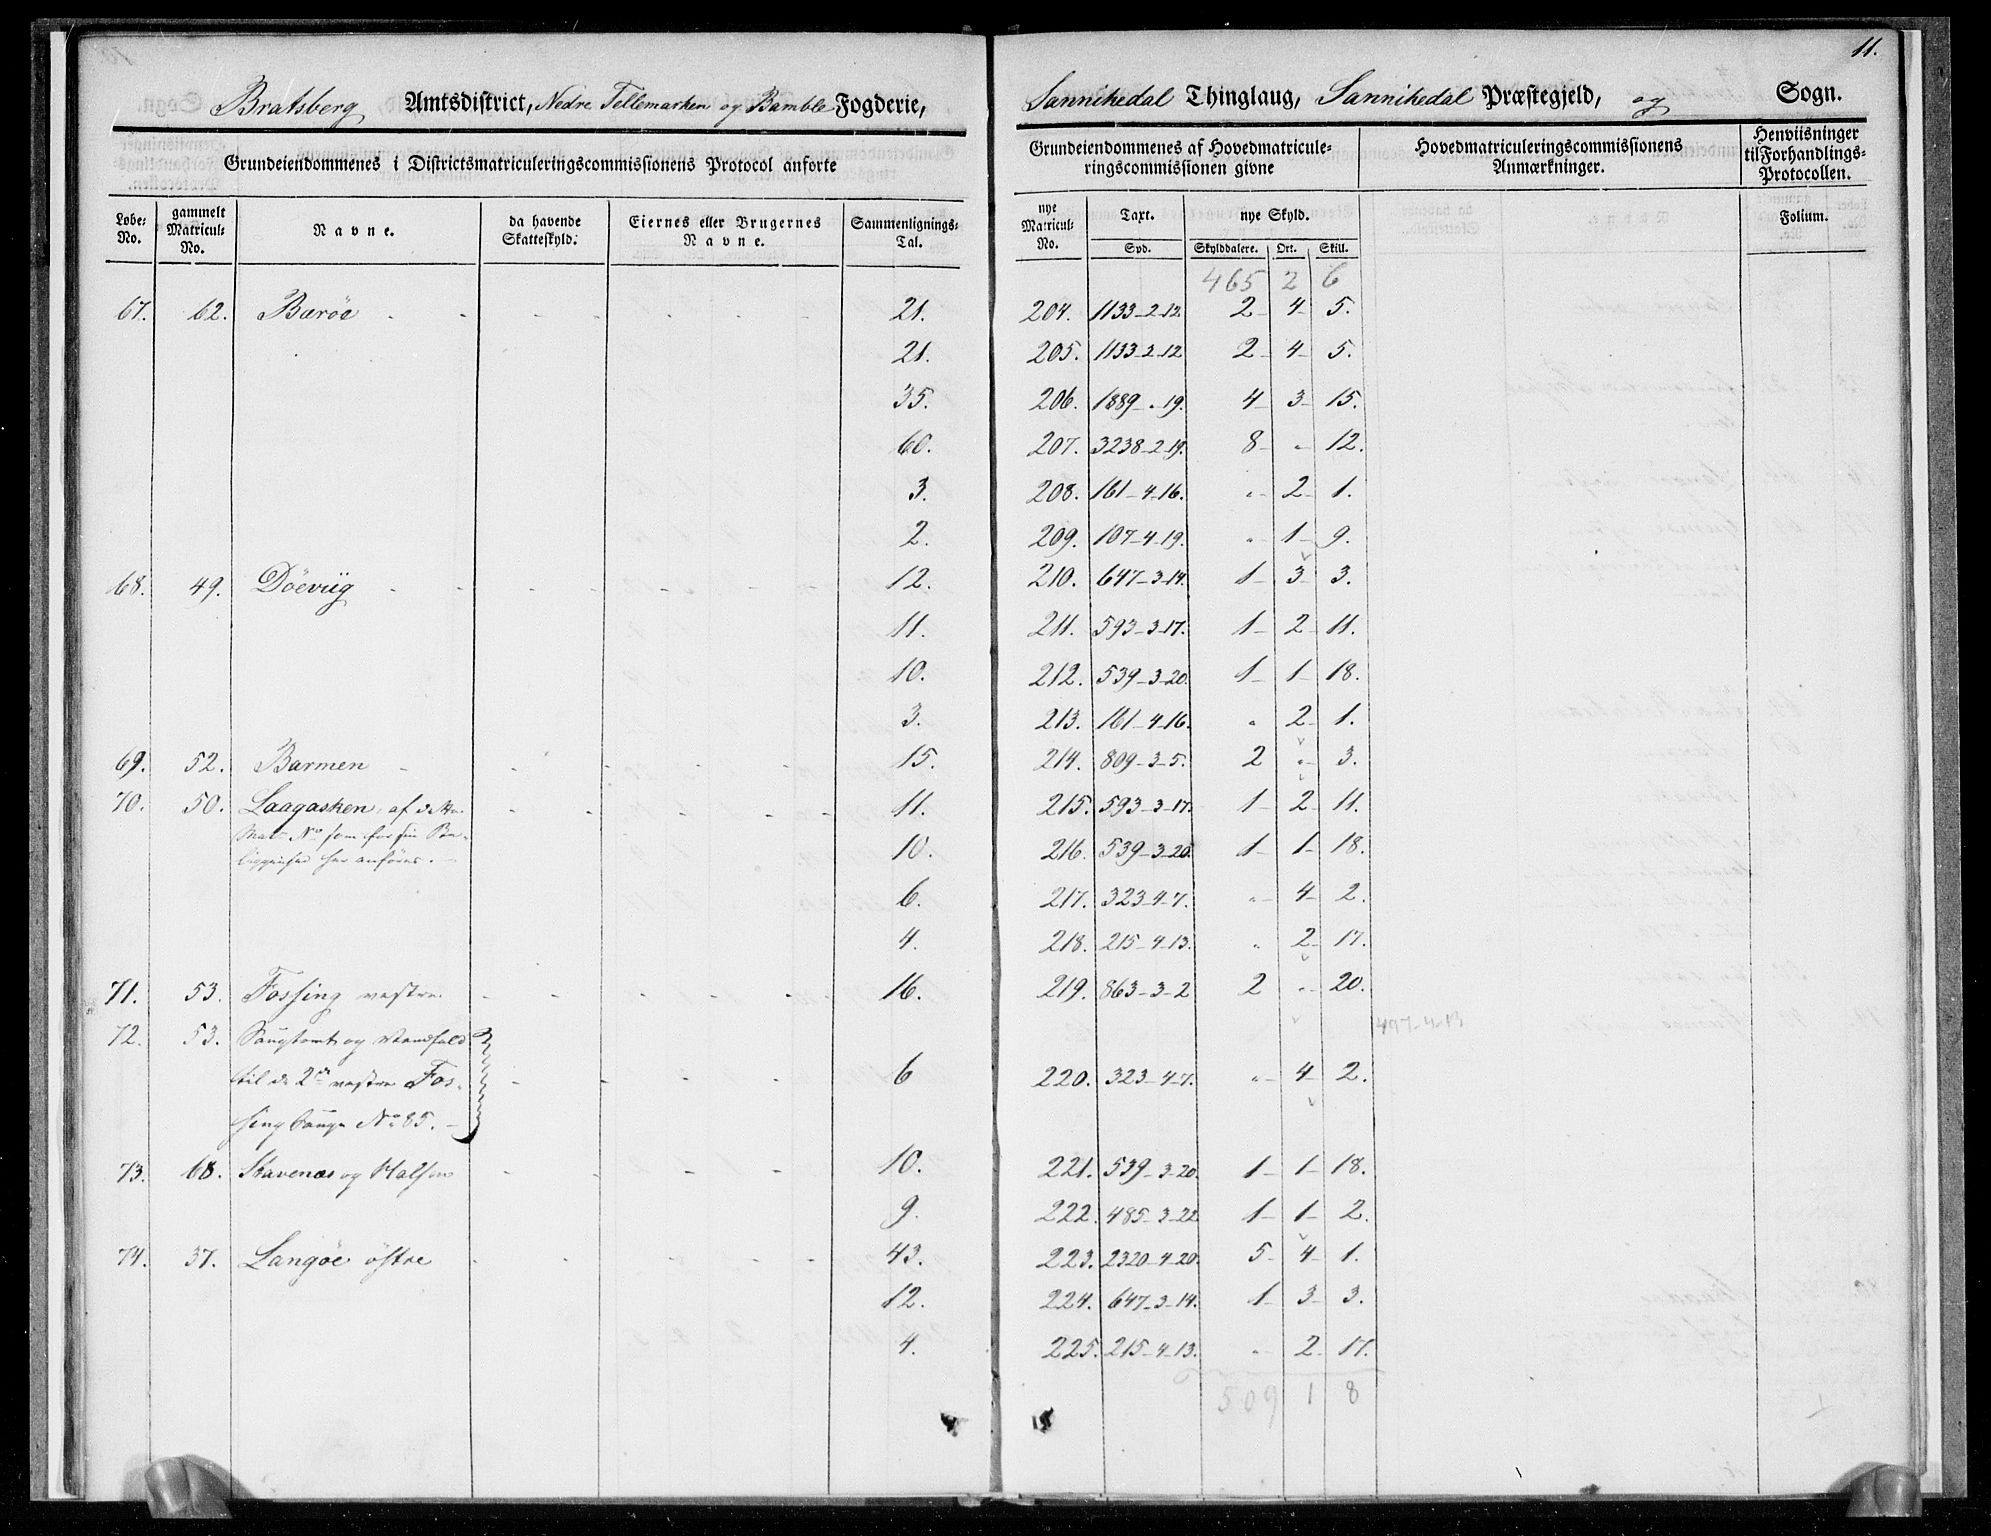 11.
Bratsberg Amtsdistrict, Nedre Tellemarken og Bamble Fogderie,
Sannikedal Thinglaug, Sannikedal Præstegjeld, og Sogn.
Grundeiendommenes i Districtsmatriculeringscommissionens Protocol anførte
Grundeiendommenes af Hovedmatricule-
ringscommissionen givne
Hovedmatriculeringscommissionens
Anmærkninger.
Henviisninger
til Forhandlings-
Protocollen.
Løbe-
No.
gammelt
Matricul-
No.
Navne.
da havende
Skatteskyld.
Eiernes eller Brugernes
Navne.
Sammenlignings-
Tal.
nye
Matricul-
No.
Taxt.
Spd.
nye Skyld.
Skylddalere. Ort. Skill.
Folium.
465 2 6
67. 62. Barøe - - - - - - 21. 204. 1133-2-12. 2- 4- 5.
21. 205. 1133-2-12 2- 4- 5.
35. 206. 1889-"-19. 4- 3- 15.
60. 207. 3238-2-19. 8- "- 12.
3. 208. 161-4-16. "- 2- 1.
2. 209. 107-4-19. "- 1- 9.
68. 49. Döeviig - - - - - - 12. 210. 647-3-14. 1- 3- 3.
11. 211. 593-3-17. 1- 2- 11.
10. 212. 539-3-20. 1- 1- 18.
3. 213. 161-4-16. " 2- 1.
69. 52. Barmen - - - - - 15. 214. 809-3-5. 2 "- 3.
70. 50. Laagasken, af dette - - - - - 11. 215. 593-3-17. 1- 2- 11.
Mat- No som for sin Be-
liggenhed her anföres. - 10. 216. 539-3-20. 1- 1- 18.
6. 217. 323-4-7. "- 4- 2.
4. 218. 215-4-13. " 2- 17.
71. 53. Fossing vestre - - - - - 16. 219. 863-3-2 2 "- 20.
497-4-13
72. 53. Saugtomt og Vandfald
til de 2de vestre Fos- - - - - 6 220. 323-4-7. "- 4- 2.
sing Sauge No 85. -
73. 68. Stavenæs og Halsen - - - - - 10. 221. 539-3-20. 1- 1- 18.
9. 222. 485-3-22 1- 1- 2.
74. 37. Langöe östre - - - - - 43. 223. 2320-4-20. 5- 4- 1.
12. 224. 647-3-14. 1- 3- 3.
4. 225. 215-4-13. "- 2- 17.
509 1 8